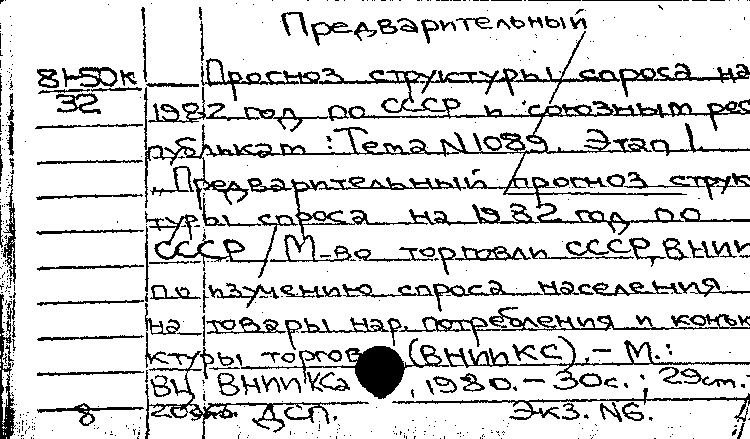 Предварительный
81-50к Прогноз структуры спроса на
32 1982 год по СССР и союзным рес
публикам : Тема N1089. Этап 1.
„Предварительный прогноз струк
туры спроса на 1982 год по
СССР / М-во торговли СССР, ВНИИ
по изучению спроса населения
на товары нар. потребления и конъю
ктуры торгов (ВНИИКС). – М.:
ВНИИКС, 1980. – 30с. ; 29см.
8 ДСП. Экз. N6.